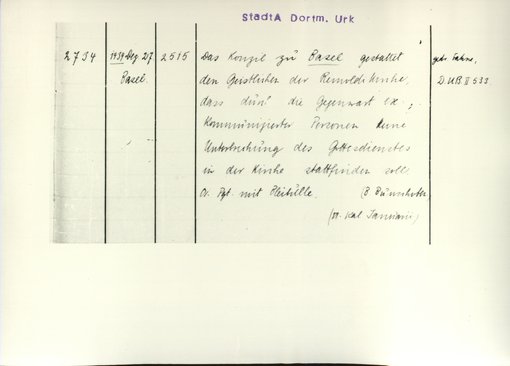 StadtA Dortm. Urk
2734 1434 Dez. 27 2515 Das Konzil zu Basel gestattet gedr. Fahne,
Basel. den Geistlichen der Reinoldikirche, D.UB II 533.
dass durch die Gegenwart ex-
kommunizierter Personen keine
Unterbrechung des Gottesdienstes
in der Kirche stattfinden solle
Or. Pgt. mit Bleibulle.
Kal. Januarii)